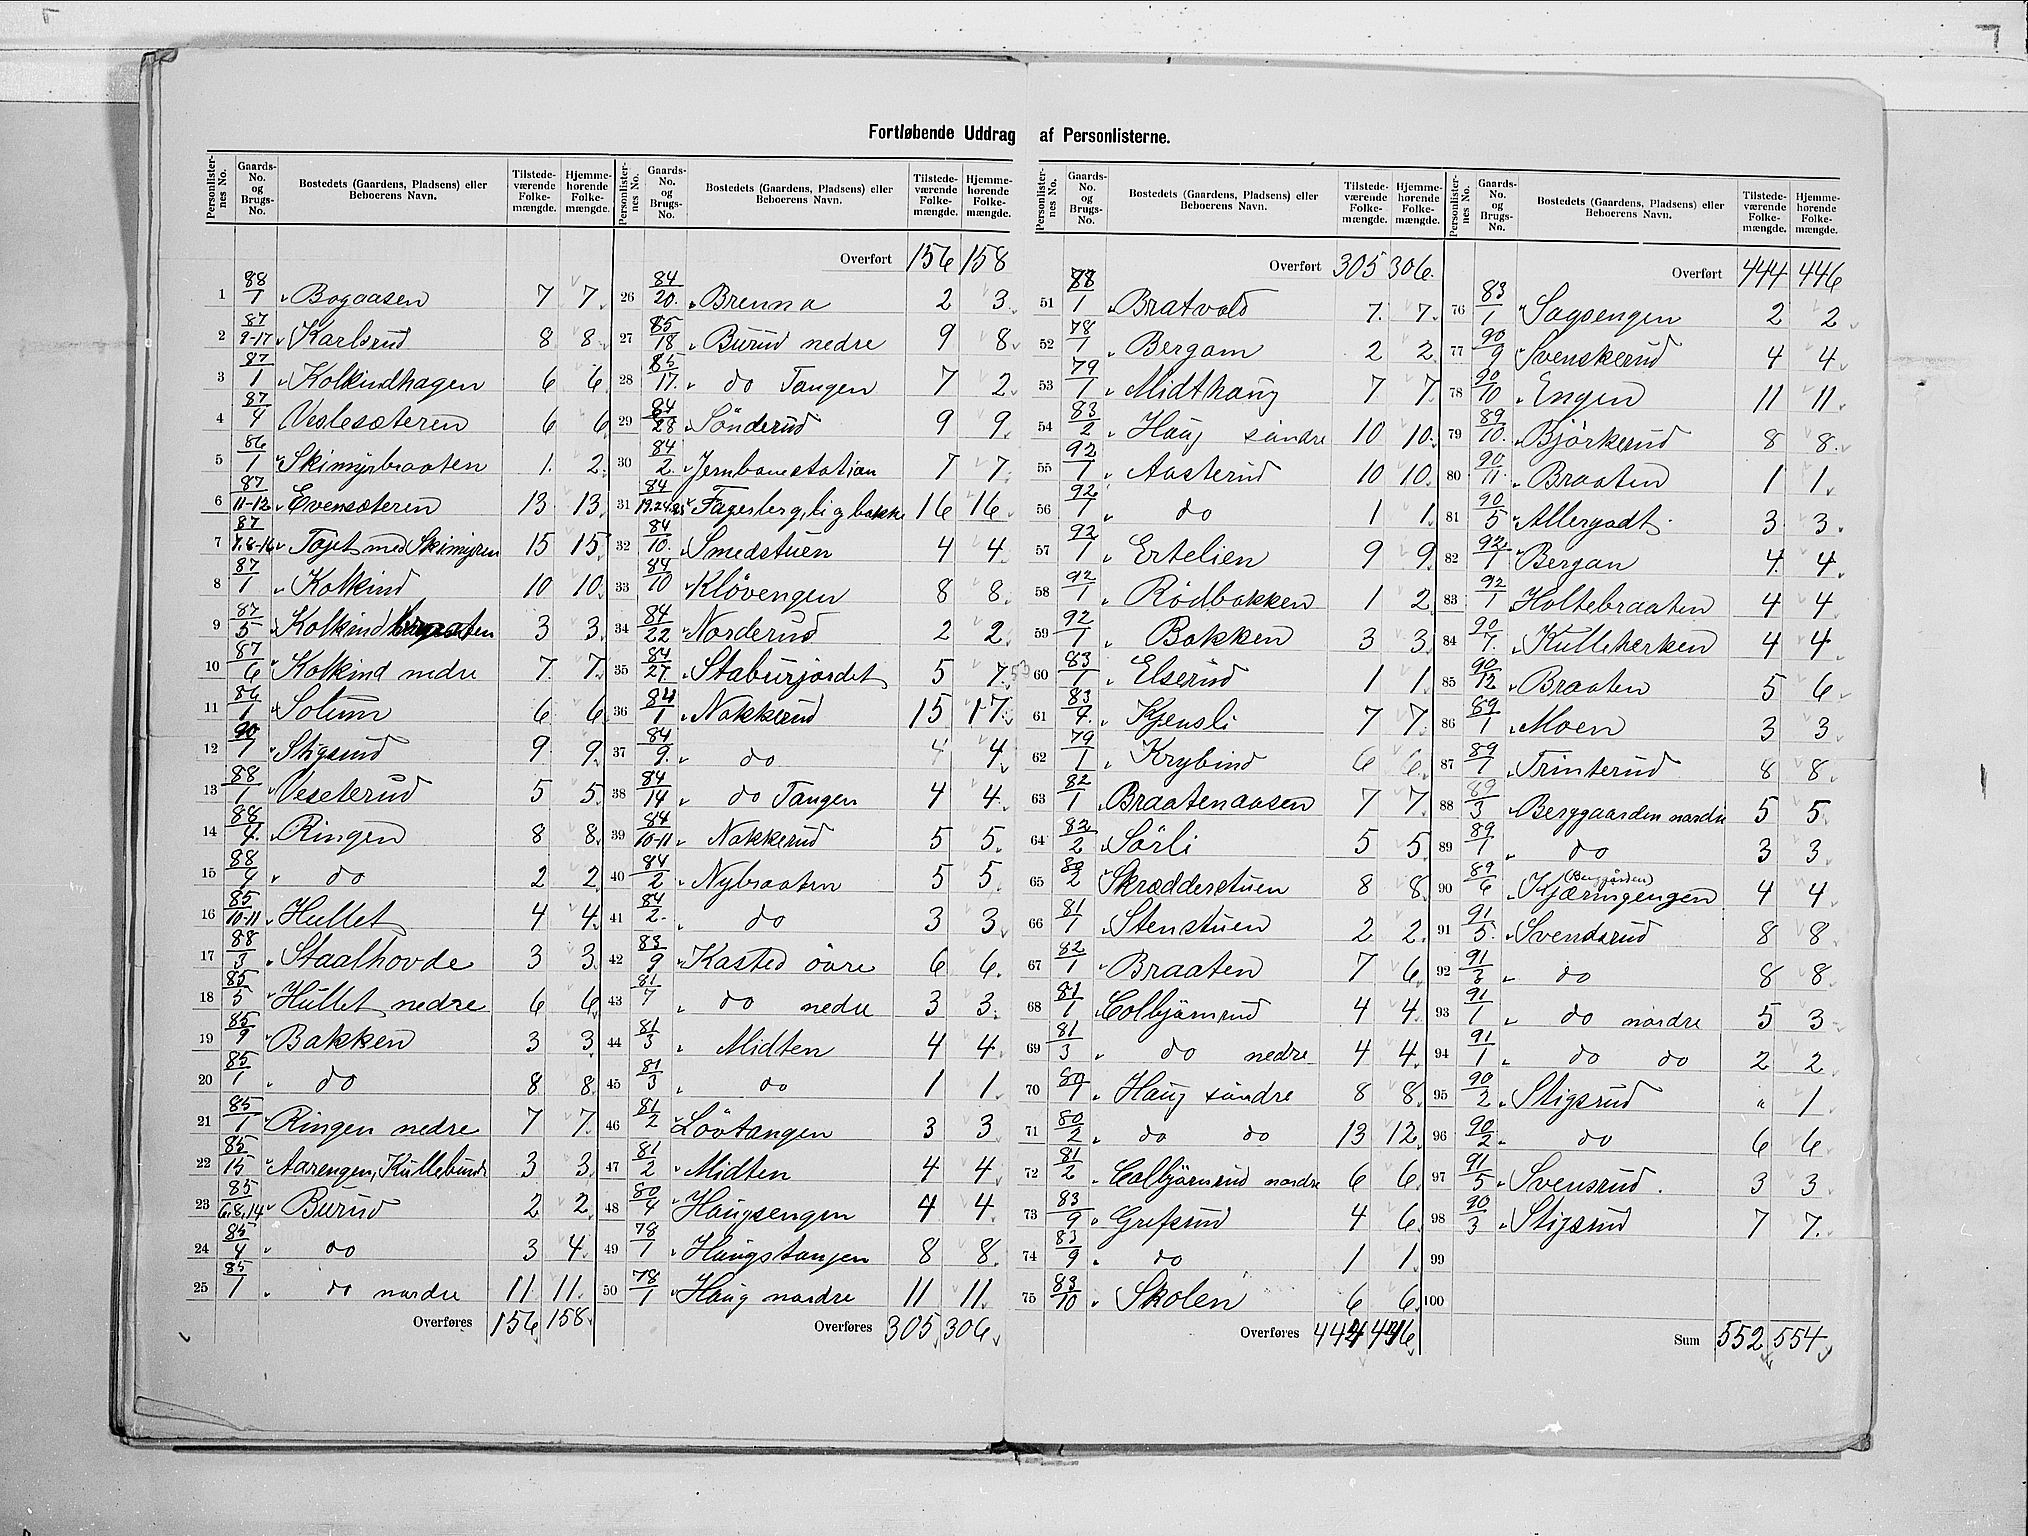 Fortløbende Uddrag af Personlisterne.
Personlisternes No. Gaards-No. og Brugs-No. Bostedets (Gaardens, Pladsens) eller Beboerens Navn. Tilstedeværende Folkemængde. Hjemmehørende Folkemængde.
1 88/1 „ Bogaasen 7 7
2 87/9-17 „ Karlsrud 8 8
3 87/1 „ Kolkindhagen 6 6
4 87/4 Veslesæteren 6 6
5 86/1 „ Skimyrbraaten 1 2
6 87/11-12 „ Evensæteren 13 13
7 87/7.8-16 „ Tajet med Skimyren 15 15
8 87/1 „ Kolkind 10 10
9 87/5 „ Kolkindbraaten 3 3
10 87/6 „ Kolkind nedre 7 7
11 86/1 „ Solum 6 6
12 90/1 „ Stigsrud 9 9
13 88/1 „ Veseterud 5 5
14 88/4 „ Ringen 8 8
15 88/4 „ do 2 2
16 85/10-11 „ Hullet 4 4
17 88/3 „ Staalhovde 3 3
18 85/5 „ Hullet nedre 6 6
19 85/9 „ Bakken 3 3
20 85/1 „ do 8 8
21 85/1 „ Ringen nedre 7 7
22 85/15 „ Aarengen, Kullebund 3 3
23 85/6,8,14 „ Burud 2 2
24 85/4 „ do 3 4
25 85/1 „ do nordre 11 11
Overføres 156 158
Personlisternes No. Gaards-No. og Brugs-No. Bostedets (Gaardens, Pladsens) eller Beboerens Navn. Tilstedeværende Folkemængde. Hjemmehørende Folkemængde.
Overført 156 158
26 84/20 „ Brenna 2 3
27 85/18 „ Burud nedre 9 8
28 85/17 „ do Tangen 7 2
29 84/28 „ Sönderud 9 9
30 84/2 „ Jernbanestation 7 7
31 84 „ Fagerberg, 16 16
32 84/10 „ Smedstuen 4 4
33 84/10 „ Klövengen 8 8
34 84/22 „ Norderud 2 2
35 84/27 „ Staburjordet 5 7
36 84/1 „ Nakkerud 15 17
37 84/9 „ do 4 4
38 84/14 „ do Tangen 4 4
39 84/10-11 „ Nakkerud 5 5
40 84/2 „ Nybraaten 5 5
41 84/2 „ do 3 3
42 83/9 „ Kasted övre 6 6
43 81/7 „ do nedre 3 3
44 81/3 „ Midten 4 4
45 81/3 „ do 1 1
46 81/2 „ Lövtangen 3 3
47 81/2 „ Midten 4 4
48 80/4 „ Haugsengen 4 4
49 78/1 „ Haugstangen 8 8
50 78/1 „ Haug nordre 11 11
Overføres 305 306
Personlisternes No. Gaards-No. og Brugs-No. Bostedets (Gaardens, Pladsens) eller Beboerens Navn. Tilstedeværende Folkemængde. Hjemmehørende Folkemængde.
Overført 305 306
51 78/1 „ Bratvold 7 7
52 78/1 „ Bergam 2 2
53 79/1 „ Midthaug 7 7
54 83/2 „ Haug söndre 10 10
55 92/1 „ Aasterud 10 10
56 92/1 „ do 1 1
57 92/1 „ Ertelien 9 9
58 92/1 „ Rödbakken 1 2
59 92/1 „ Bakken 3 3
60 83/1 „ Elserud 1 1
61 83/4 „ Kjensli 7 7
62 79/1 „ Krybind 6 6
63 82/1 „ Braatenaasen 7 7
64 82/2 „ Sörli 5 5
65 80/2 „ Skrædderstuen 8 8
66 81/1 „ Stenstuen 2 2
67 82/1 „ Braaten 7 6
68 81/1 „ Colbjörnrud 4 4
69 81/3 „ do nedre 4 4
70 80/1 „ Haug söndre 8 8
71 80/2 „ do do 13 12
72 81/2 „ Colbjörnrud nordre 6 6
73 83/9 „ Grefsrud 4 6
74 83/9 „ do 1 1
75 83/10 „ Skolen 6 6
Overføres 444 446
Personlisternes No. Gaards-No. og Brugs-No. Bostedets (Gaardens, Pladsens) eller Beboerens Navn. Tilstedeværende Folkemængde. Hjemmehørende Folkemængde.
Overført 444 446
76 83/1 „ Sagsengen 2 2
77 90/9 „ Svenskerud 4 4
78 90/10 „ Engen 11 11
79 89/10 „ Björkerud 8 8
80 90/11 „ Braaten 1 1
81 90/5 „ Allergodt 3 3
82 92/1 „ Bergan 4 4
83 92/1 Holtebraaten 4 4
84 90/7 „ Kullekerken 4 4
85 90/12 „ Braaten 5 6
86 89/1 „ Moen 3 3
87 89/1 „ Trinterud 8 8
88 89/3 „ Berggaarden nordre 5 5
89 89/1 „ do 3 3
90 89/6 „ Kjæringengen (Berggården) 4 4
91 91/5 „ Svendsrud 8 8
92 91/3 „ do 8 8
93 91/1 „ do nordre 5 3
94 91/1 „ do do 2 2
95 90/2 „ Stigsrud „ 1
96 90/2 „ do 6 6
97 91/5 „ Svensrud 3 3
98 90/3 „ Stigsrud 7 7
99
100
Sum 552 554